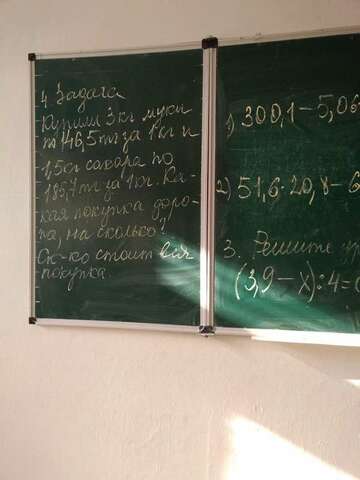 4. Задача
Купили 3 кг муки
по 146,5 тг за 1 кг и
1,5 кг сахара по
185,7 тг за 1 кг. Ка-
кая покупка доро-
па, на сколько?
Ск-ко стоит вся
покупка
1) 300,1 - 5,06
2) 51,6 · 20,8 - 6
3. Решите ур
(3,9 - x) : 4 =